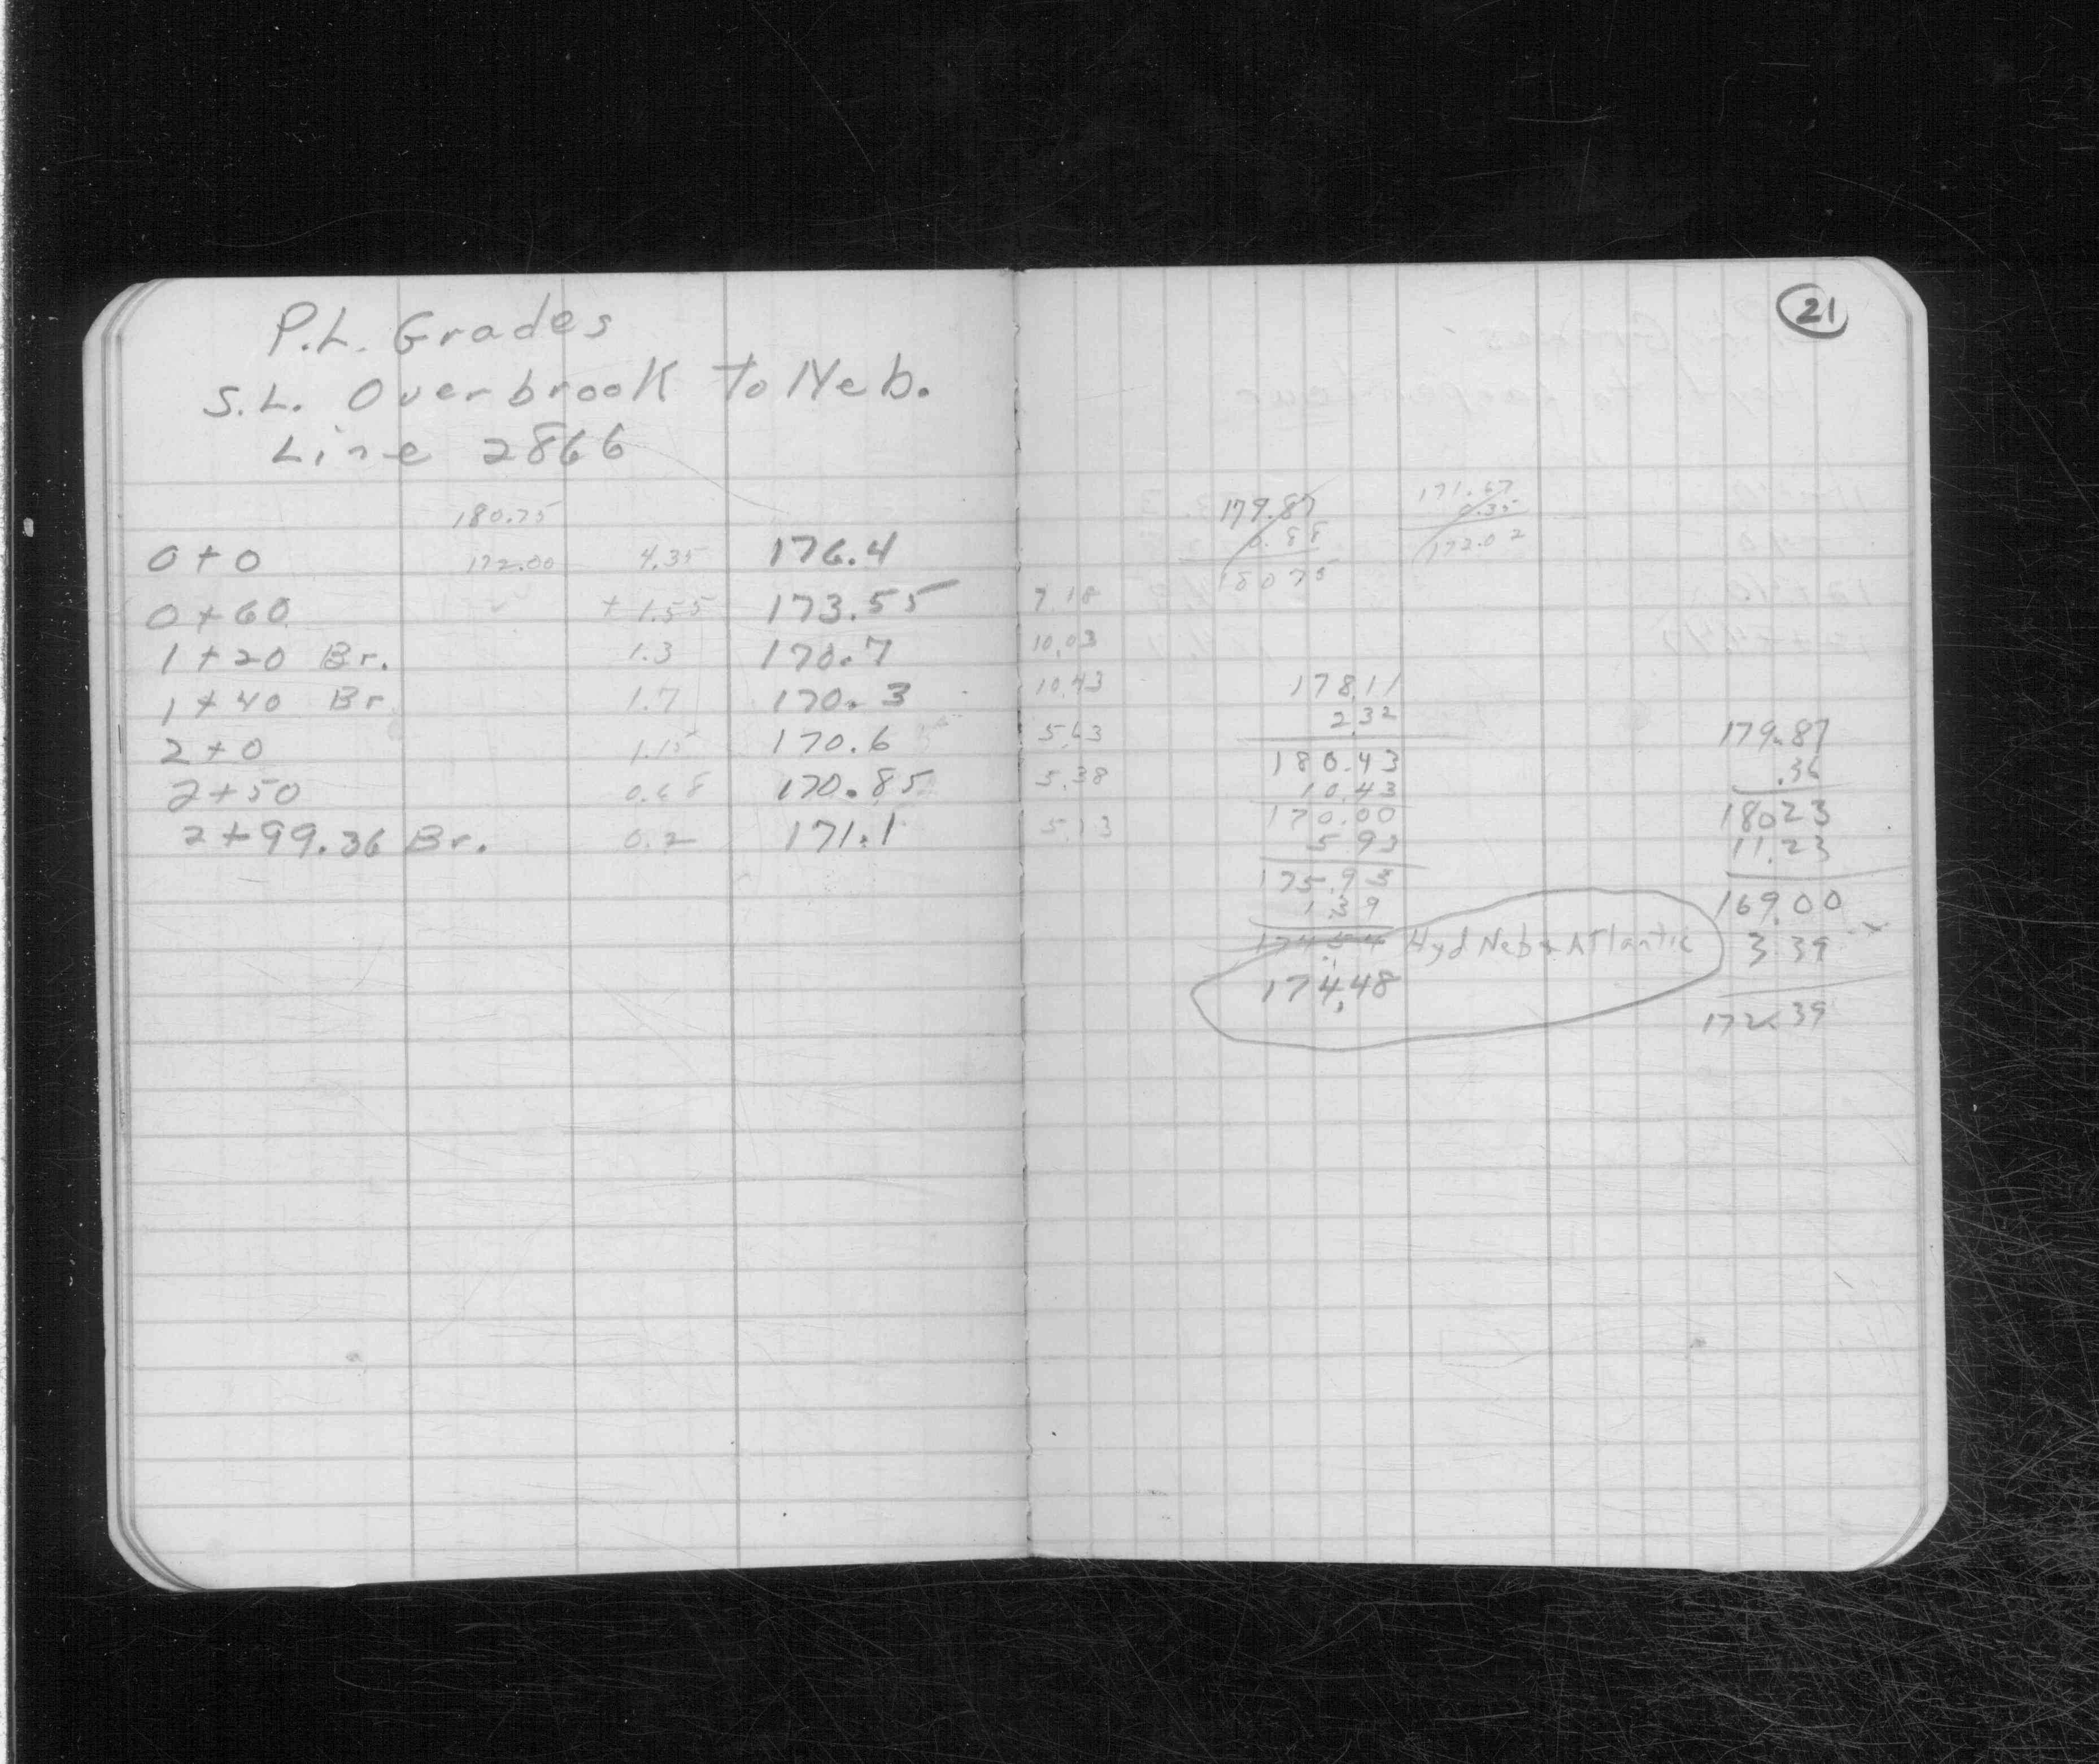 P.L. Grades
S.L. Overbrook to Neb.
Line 2866
180.75
0+0 172.00 4.35 176.4
0+60 + 1.55 173.55
1+20 Br. 1.3 170.7
1+40 Br 1.7 170.3
2+0 1.15 170.6
2+50 0.68 170.85
2+99.36 Br. 0.2 171.1
21
179.87
0.88
180 75
171.67
0.35
172.02
7.18
10.03
10.43
5.63
5.38
5.13
178.11
2.32
180.43
10.43
170.00
5.93
175.93
1.39
174.54 Hyd Neb & Atlantic
174.48
179.87
.36
180.23
11.23
169.00
3.39
172.39